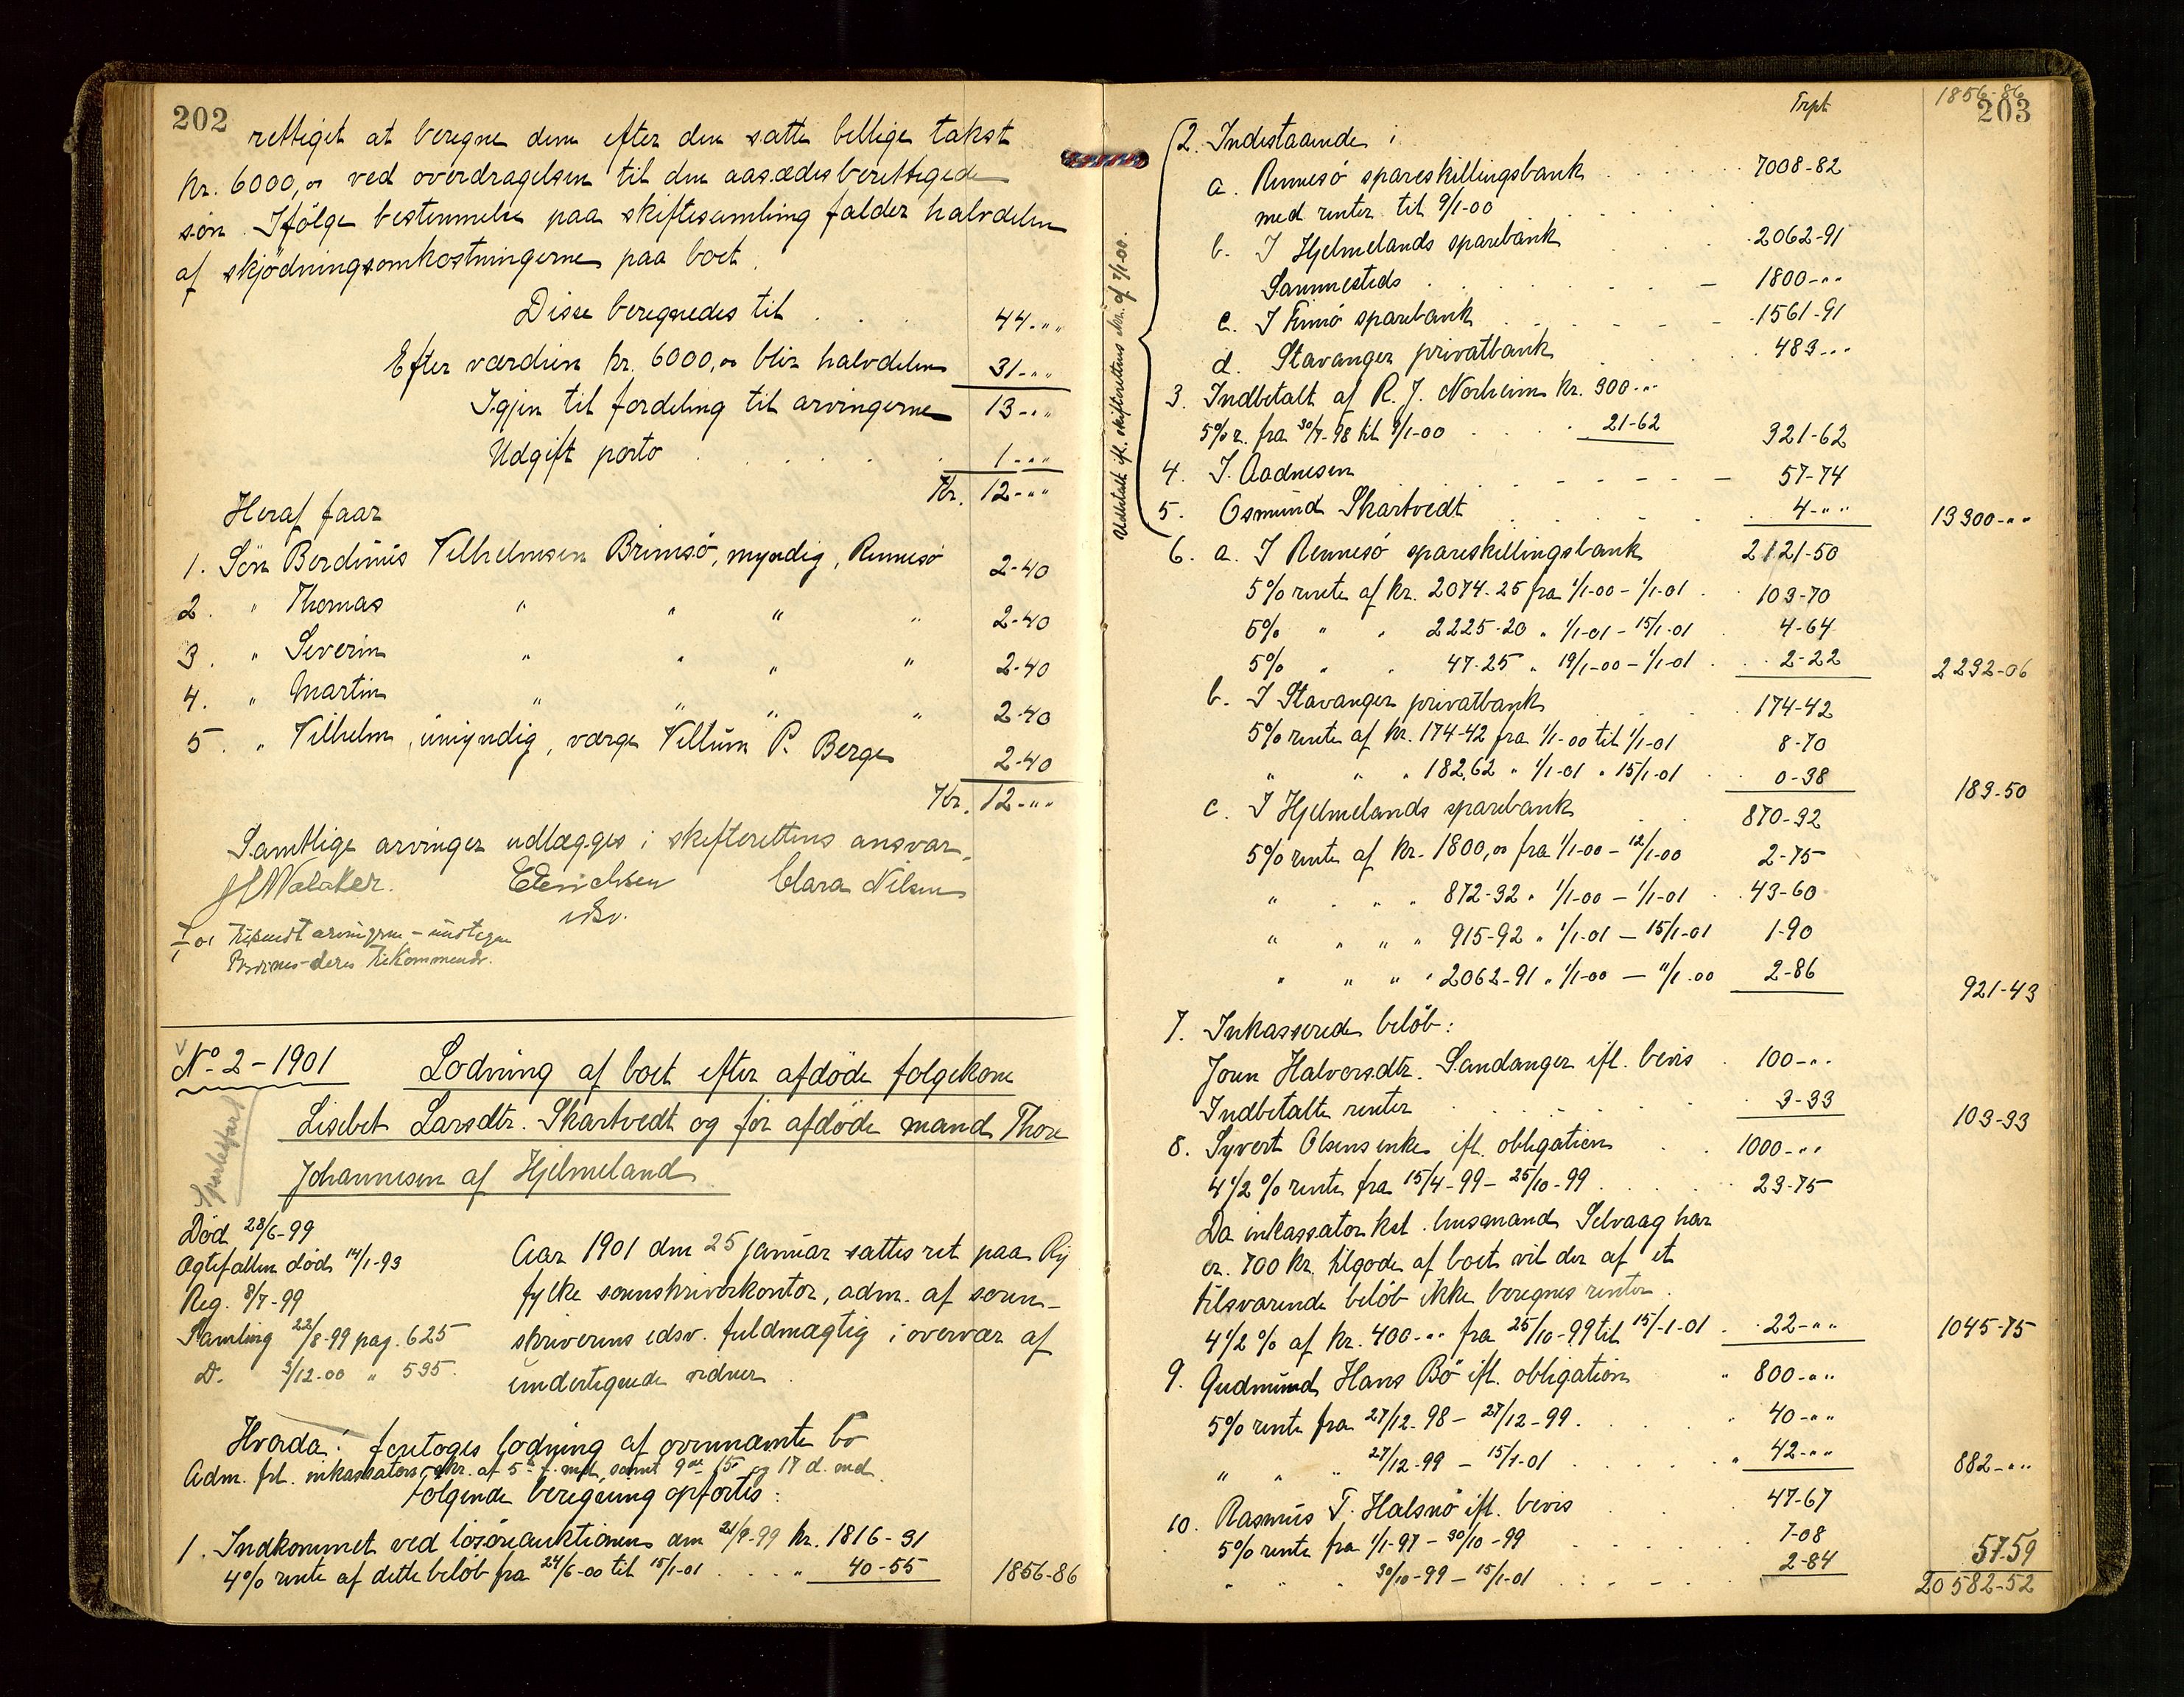 202
rettiget at beregne dem efter den satte billige takst
kr. 6000,00 ved overdragelsen til den aasædesberettigede
søn. Ifölge bestemmelse paa skiftesamling falder halvdelen
af skjödningsomkostningerne paa boet.
Disse beregnedes til . . . 44-""
Efter værdien kr. 6000,00 blir halvdelen 31-""
Igjen til fordeling til arvingerne 13-""
Udgift porto . . . . . 1-""
Kr. 12-""
Heraf faar
1. Sön Berdinus Vilhelmsen Brimsö, myndig, Rennesö 2-40
2. " Thomas " " " " 2-40
3. " Severin " " " " 2-40
4. " Martin " " " " 2-40
5. " Vilhelm, umyndig, værge Villum P. Berge 2-40
Kr. 12-""
Samtlige arvinger udlægges i skifterettens ansvar.
Clara Nilsen
edsv.
No 2-1901 Lodning af boet efter afdöde folgekone
Lisebet Larsdtr. Skartvedt og før afdöde mand Thore
Johannesen af Hjelmeland
Död 28/6-99
Ægtefællen död 14/1-93
Reg. 8/7-99
Samling 22/8-99 pag. 625
D. 3/12-00 " 535.
Aar 1901 den 25 januar sattes ret paa Ry
fylke sorenskriverkontor, adm. af soren-
skriverens edsv. fuldmægtig i overvær af
undertegnede vidner.
Hvorda: foretoges lodning af ovennævnte bo
Adm. frl. inkassators skr. af 5te f. md, samt 9de 15 og 17 d. md.
Følgende beregning opførtes:
1. Indkommet ved lösöreauktionen den 21/9-99 kr. 1816-31
4% rente af dette belöb fra 24/6-00 til 15/1-01 . . . " 40-55 1856-86
203
Trpt 1856-86
Udbetalt ifl. skifterettens skr. af 2/1-00.
2. Indestaaende i
a. Rennesö spareskillingsbank . . . . 7008-82
med renter til 9/1-00
b. I Hjelmelands sparebank . . . 2062-91
Sammesteds . . . . . 1800-""
c. I Finnö sparebank . . . . . 1561-91
d. Stavanger privatbank . . . 483-""
3. Indbetalt af R. J. Norheim kr. 300-""
5% r. fra 30/7-98 til 9/1-00 . . . 21-62 321-62
4. J. Aadnesen . . . . . 57-74
5. Osmund Skartvedt . . . . 4-"" 13300-""
6. a. I Rennesö spareskillingsbank 2121-50
5% rente af kr. 2074-25 fra 1/1-00 - 1/1-01 . 103-70
5% " " 2225-20 " 1/1-01 - 15/1-01 4-64
5% " " 47-25 " 19/1-00 - 1/1-01 . . 2-22 2232-06
b. I Stavanger privatbank . . 174-42
5% rente af kr. 174-42 fra 1/1-00 til 1/1-01 8-70
" " " 182,62 " 1/1-01 " 15/1-01 . 0-38 183-50
c. I Hjelmelands sparebank . . 870-32
5% rente af kr. 1800,00 fra 1/1-00 - 12/1-00 2-75
" " " " 872-32 " 1/1-00 - 1/1-01 . 43-60
" " " " 915-92 " 1/1-01 - 15/1-01 1-90
" " " " 2062-91 " 1/1-00 - 11/1-00 2-86 921-43
7. Inkasserede belöb:
Joren Halvorsdtr. Sandanger ifl. bevis . 100-""
Indbetalte renter . . . . . 3-33 103-33
8. Syvert Olsens enke ifl. obligation . . 1000-""
4 1/2 % rente fra 15/4-99 - 25/10-99 . . . 23-75
Da inkassator kst. lensmand Selvaag har
ca. 700 kr. tilgode af boet vil der af et
tilsvarende belöb ikke beregnes renter.
4 1/2 % af kr. 400-"" fra 25/10-99 til 15/1-01 . . 22-"" 1045-75
9. Gudmund Hans Bö ifl. obligation " 800-""
5% rente fra 27/12-98 - 27/12-99 . . . " 40-""
" " " 27/12-99 - 15/1-01 . . . . " 42-"" 882-""
10. Rasmus T. Halsnö ifl. bevis . 47-67
5% rente fra 1/1-97 - 30/10-99 . . . . 7-08
" " " 30/10-99 - 15/1-01 . . . . 2-84 57-59
20582-52